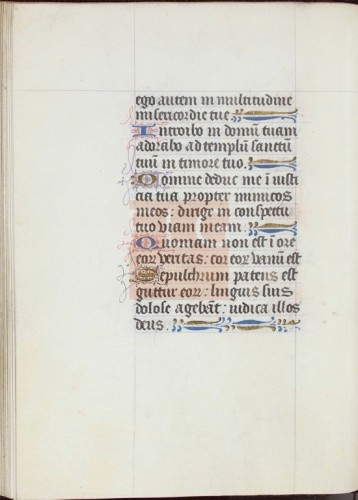 ego autem in multitudine
misericordie tue
Introibo in domū tuam
adorabo ad templū sanctū
tuū in timore tuo.
Domine deduc me i iusti
cia tua propter inimicos
meos: dirige in conspectu
tuo viam meam.
Quoniam non est ī ore
eoꝝ veritas: cor eoꝝ vanū est
Sepulchrum patens est
guttur eoꝝ: linguis suis
dolose agebāt: iudica illos
deus.